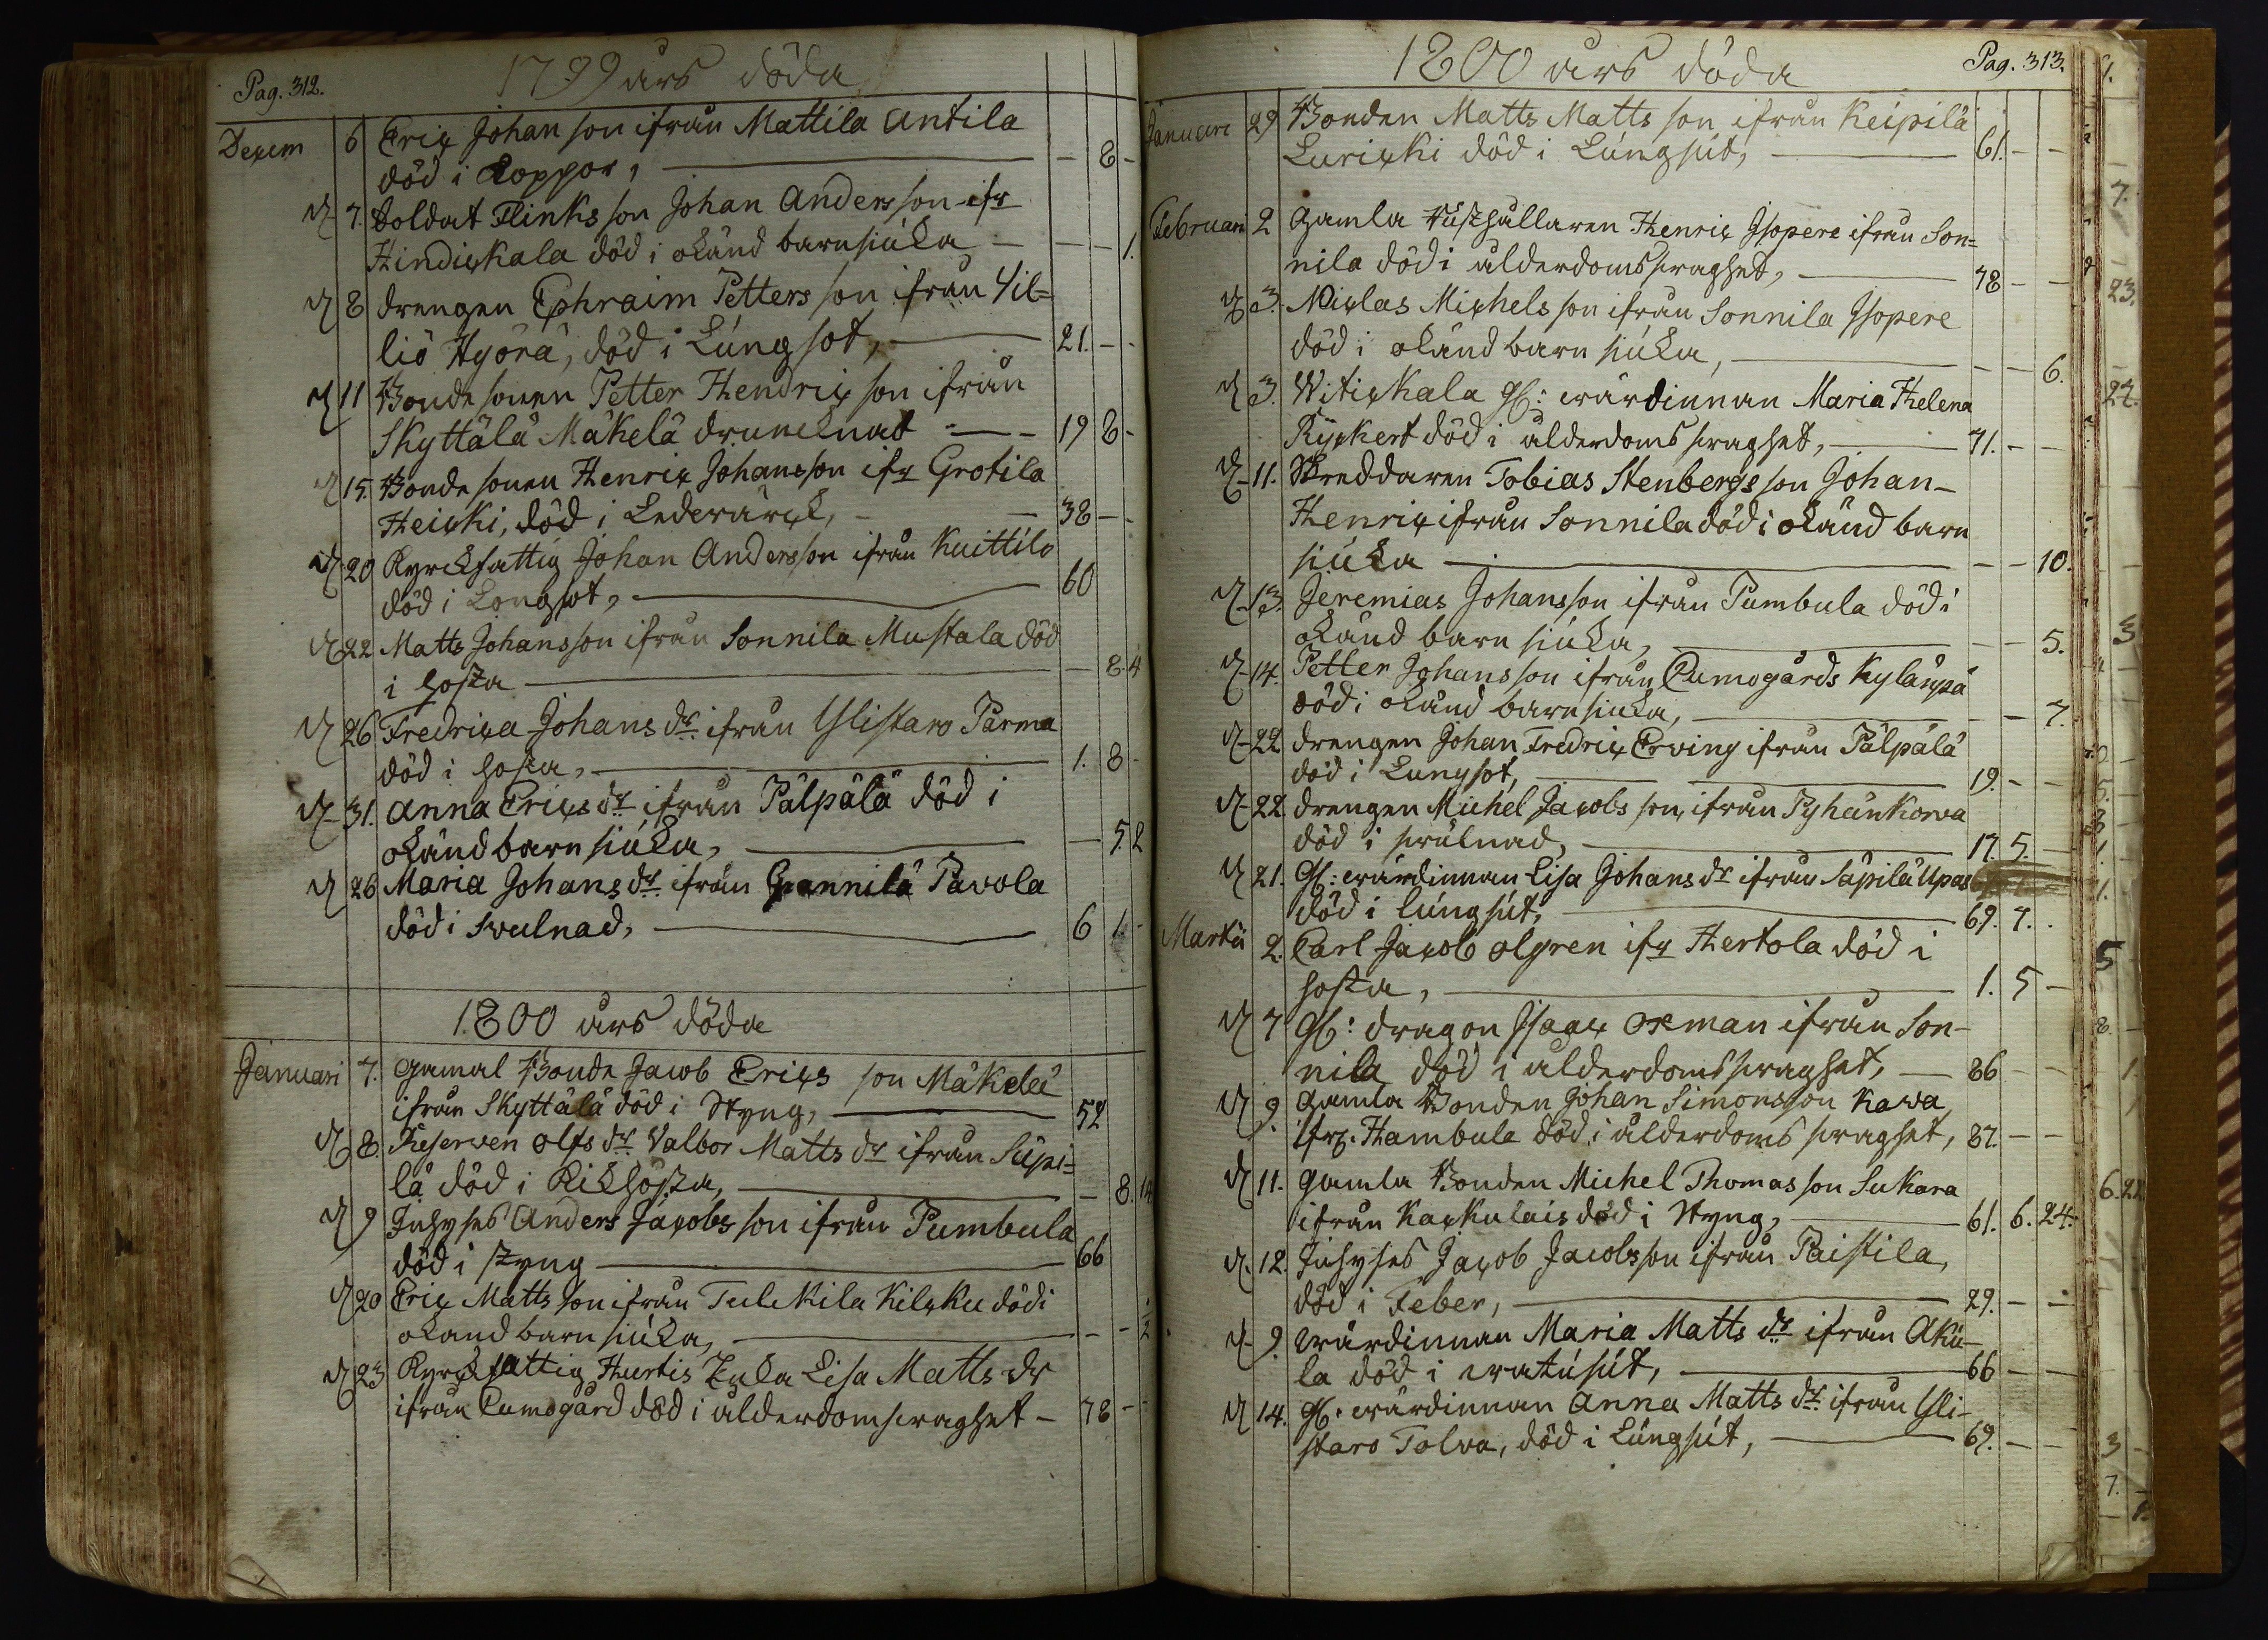 Pag. 312.
1799 års döda
Decem 6 Eric Johan son ifrån Mattila Antila
död i koppor, — 8 -
d 7. Soldat Flinks son Johan Anders son ifr
Hindickala död i okänd barnsiuka — — 1.
d 8 drengen Ephraim Petters son ifrån Vil=
liö Hyörä, död i Lúngsot, 21. - -
d 11 Bonde sonen Petter Hendric son ifrån
Skyttälä Mäkelä drunknad — 19 8 -
d 15. Bonde sonen Henric Johansson ifr Grotila
Heicki, död i Ledvärck, 38 - -
d 20 Kyrckfattig Johan Andersson ifrån Kuittilo
död i Longsot, 60
d 22 Matts Johansson ifrån Sonnila Mustala död
i hosta — 8. 4
d 26 Fredrica Johans dr ifrån Ylistaro Parma
död i hosta, 1. 8 -
d 31. Anna Erics dr ifrån Pälpälä död i
okänd barn siúka, — 5 2
d 26 Maria Johans dr ifrån Gannilä Pavola
död i Svulnad, 6 1. -
1800 års döda
Januari 7. gamal Bonde Jacob Erics son Mäkelä
ifrån Skyttälä död i Styng, 52
d 8. Reserven Olfs dr Valbor Matts dr ifrån Säpi=
lä död i Kikhosta, — 8. 14
d 9 Inhyses Anders Jacobs son ifrån Pumbula
död i styng 66
d 20 Eric Matts son ifrån Tulckila Kilcku död i
okänd barn siúka, - - 1/2
d 23 Kyrckfattig Hurtis Enka Lisa Matts dr
ifrån Cumogård död i ålderdomsvaghet - 78 - -
1800 års döda
Pag. 313.
Januari 29 Bonden Matts Matts son ifrån Keipilä
Luricki död i Lúngsút, 61. - -
Februari 2 gamla Rusthållaren Henric Isopere ifrån Son=
nila död i ålderdomssvaghet, 78 - -
d 3. Niclas Michels son ifrån Sonnila Isopere
död i okänd barn siúka, - - 6.
d 3. Witickala gl: wärdinnan Maria Helena
Ryckert död i ålderdoms svaghet, 71. - -
d 11. Skreddaren Tobias Stenbergs son Johan-
Henric ifrån Sonnila död i okänd barn
siúka - - 10.
d 13. Jeremias Johansson ifrån Pumbula död i
okänd barn siúka, - - 5.
d 14. Petter Johansson ifrån Cumogårds Kylänpä
död i okänd barnsiuka, - - 7.
d 22 drengen Johan Fredric Erving ifrån Pälpälä
död i Lungsot, 19. - -
d 22 drengen Michel Jacobs son ifrån Pyhänkorva
död i svulnad, 17. 5. -
d 21. gl: wärdinnan Lisa Johans dr ifrån Säpilä Upas
död i lúngsút, 69. 7. .
Martii 2. Carl Jacob Algren ifr Hertola död i
hosta, 1. 5 -
d 7 gl: dragon Isaac Oxman ifrån Son-
nila död i ålderdomssvaghet, 86 - -
d 9. gamla Bonden Johan Simonsson Kawa
ifr. Hambula död i ålderdoms svaghet, 87. - -
d 11. gamla Bonden Michel Thomas son Sukara
ifrån Kackulais död i Styng, 61. 6. 24.
d 12. Inhyses Jacob Jacobsson ifrån Paistila,
död i Feber, 29. - -
d 9. wärdinnan Maria Matts dr ifrån Aku-
la död i watúsút, 66 - -
d 14. gl: wärdinnan Anna Matts dr ifrån Yli-
staro Tolva, död i Lúngsút, 69. - -